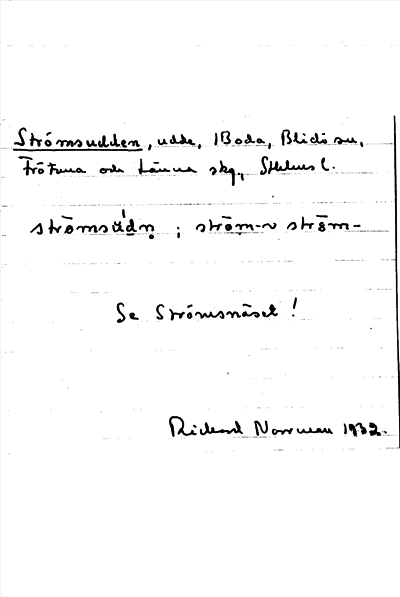 Strömsudden, udde, 1 Boda, Blidö sn,
Frötuna och Länna skg, Sthlms l.
strömsúdn ; ström- ström-
Se Strömsnäset!
Rickard Norrman 1932.